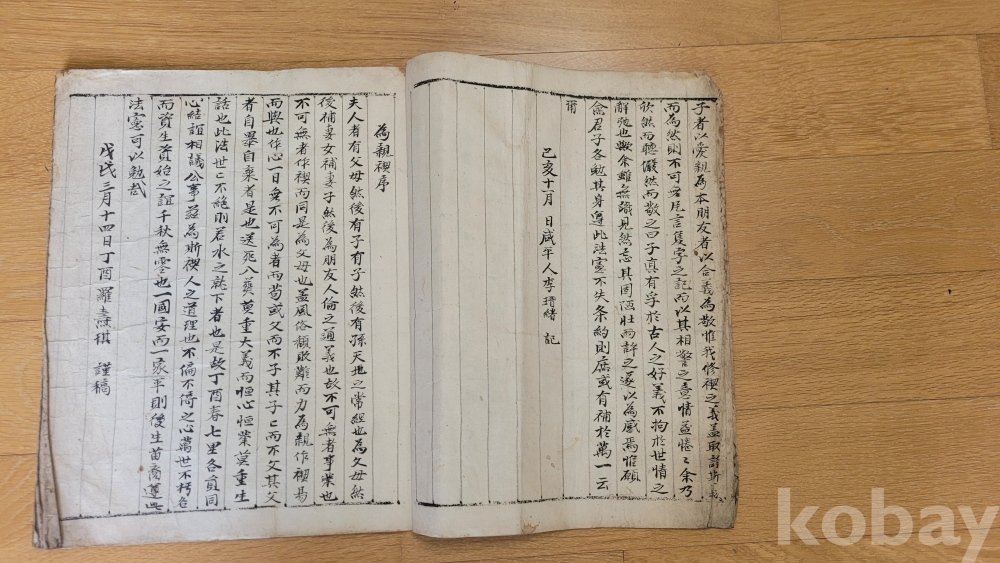 子者以愛親為本朋友者以合義為敬惟我修禊之義盖取諸斯
而為然則不可無片言隻字之記而以其相警之意情益惓〻余乃
欣然而聽儼然而敬之曰子真有孚於古人之好義不拘於世情之
解弛也興余雖無識見然忘其固陋壯而許之遂以為感焉惟願
僉君子各勉其身遵此法憲不失条約則庶或有補於萬一云
爾
己亥十一月 日咸平人李瑨緖 記
為親禊序
夫人者有父母然後有子有子然後有孫天地之常經也為父母然
後補妻女補妻子然後為朋友人倫之通義也故不可無者事業也
不可無者作禊而同是為父母也盖風俗頹敗難而力為親作禊易
而興也作心一日無不可為者而苟或父而不子其子〻而不父其父
者自畢自棄者是也送死入葬莫重大義而恒心恒業莫重生
話也此法世〻不絶則若水之就下者也是故丁酉春七里各員同
心結誼相議公事玆為斯禊人之道理也不偏不倚之心萬世不朽各
而資生資始之誼千秋無霊也一國安而一家平則後生苗裔遵此
法憲可以勉哉
戊戌三月十四日丁酉羅燾琪 謹稿
kobay